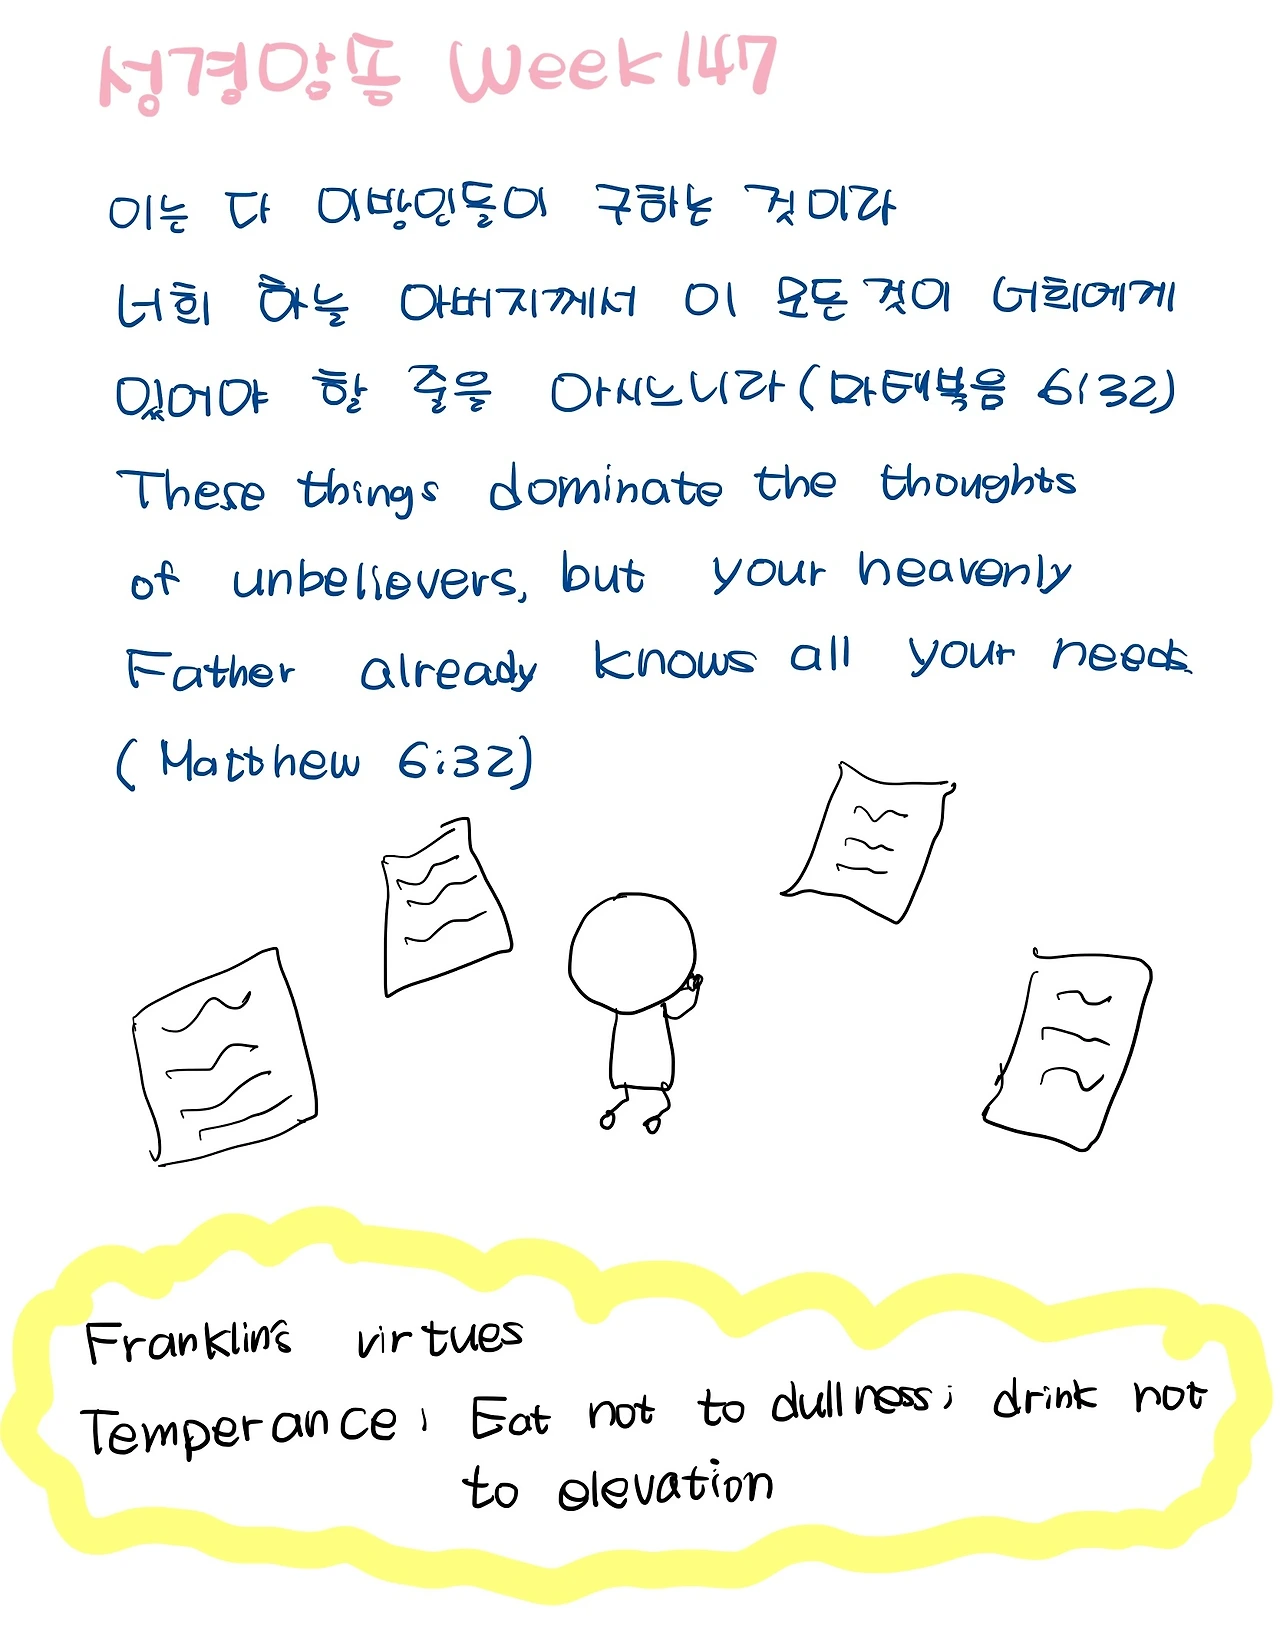 성경암송 Week147
이는 다 이방인들이 구하는 것이라
너희 하늘 아버지께서 이 모든 것이 너희에게
있어야 할 줄을 아시느니라 (마태복음 6:32)
These things dominate the thoughts
of unbelievers, but your heavenly
Father already knows all your needs
(Matthew 6:32)
Franklin's virtues
Temperance: Eat not to dullness; drink not
to elevation